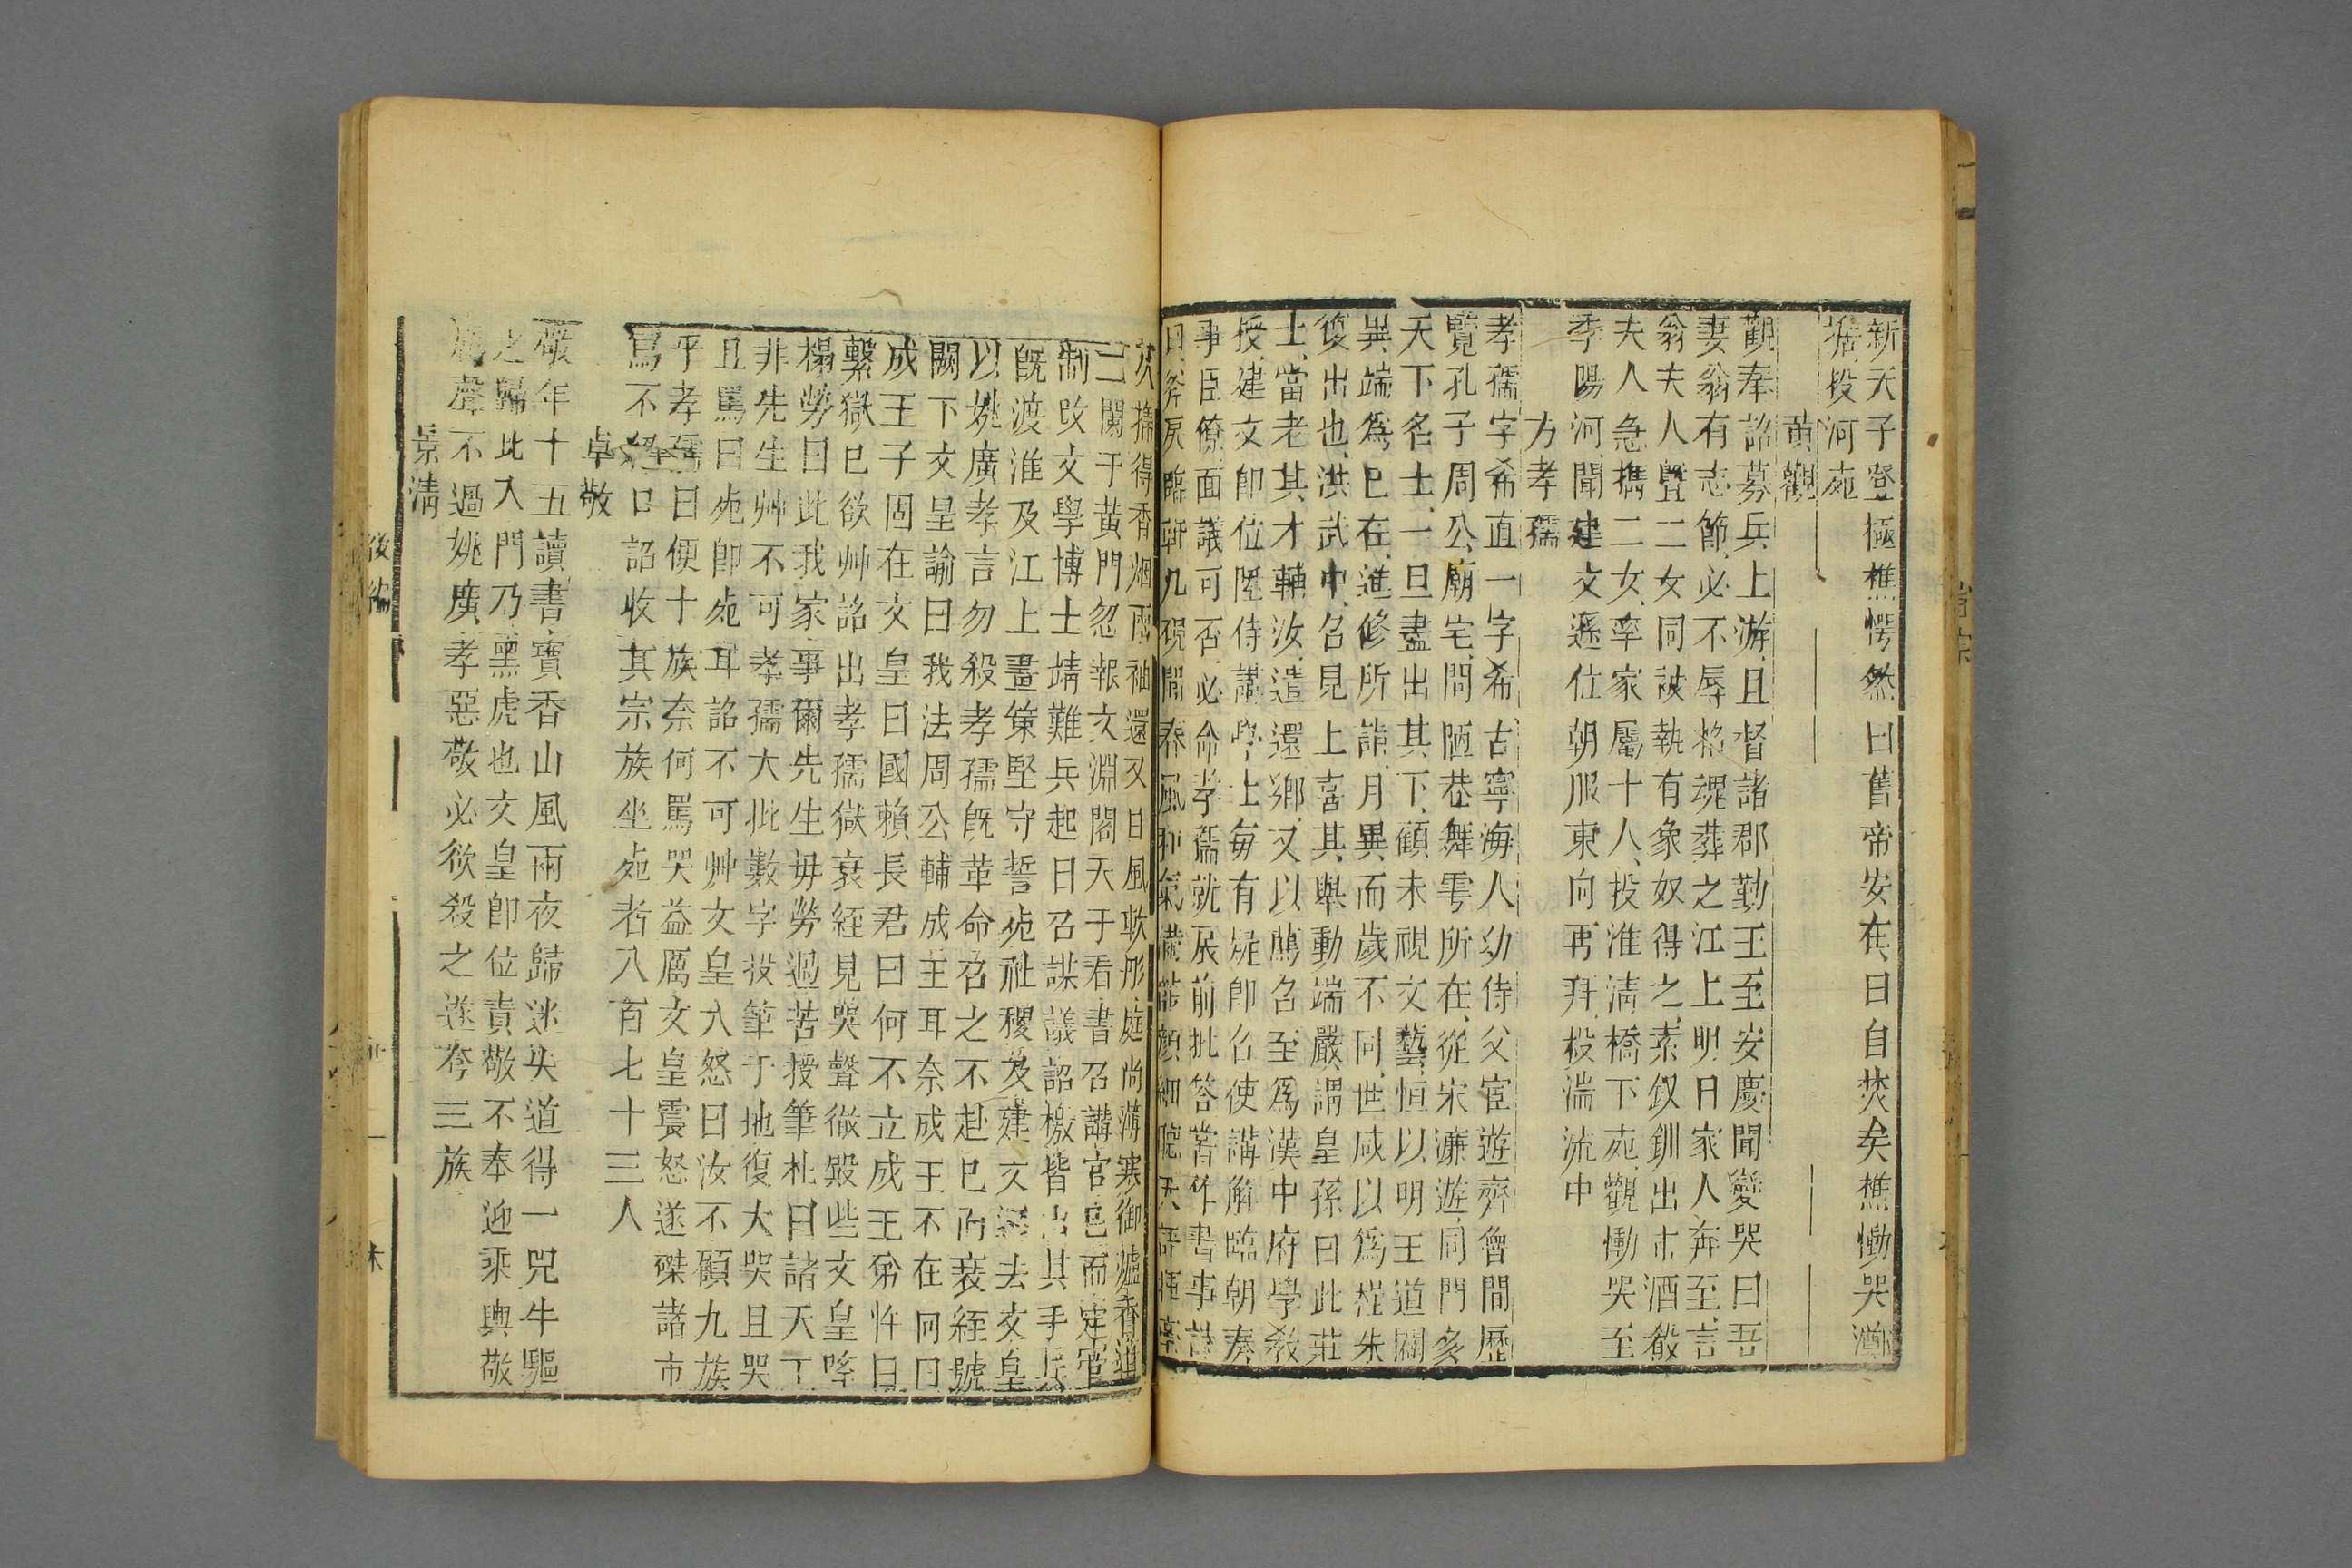 新天子登極樵愕然曰舊帝安在曰自焚矣樵慟哭
擔投河死
黃觀
觀奉詔募兵上游且督諸郡勤王至安慶聞變哭曰吾
妻翁有志節必不辱招魂葬之江上明日家人奔至言
翁夫人暨二女同被執有象奴得之索釵釧出市酒殽
夫人急攜二女率家屬十人投淮清橋下死觀慟哭至
季陽河聞建文遜位朝服東向再拜投湍流中
方孝孺
孝孺字希直一字希古寧海人幼侍父宦遊齊魯間歷
覽孔子周公廟宅問陋巷舞雩所在從宋濂遊同門多
天下名士一旦盡出其下顧末視文藝恒以明王道闢
異端為己在進修所詣月異而歲不同世咸以為程朱
復出也洪武中召見上喜其舉動端嚴謂皇孫曰此莊
士當老其才輔汝遣還鄉又以薦召至為漢中府學教
授建文即位陞侍講學上每有疑即召使講解臨朝奏
事臣僚面議可否必命孝孺就扆前批答嘗作書事詩
曰斧扆臨軒几硯間春風和氣滿龍顏細聽天語揮毫
攜得香烟兩袖還又曰風軟彤庭尚薄寒御爐香
二闌于黃門忽報文淵閣天于看書召講官已而定官
制改文學博士靖難兵起日召謀議詔檄皆出其手兵
既渡淮及江上畫策堅守誓死社稷及建文遜去文皇
以姚廣孝言勿殺孝孺既革命召之不赴已而衰絰號
闕下文皇諭曰我法周公輔成王耳奈成王不在何曰
成王子固在文皇曰國賴長君曰何不立成王弟忤旨
繫獄已欲艸詔出孝孺獄衰絰見哭聲徹殿些文皇降
榻勞曰此我家事爾先生毋勞過苦授筆札曰諸天下
非先生艸不可孝孺大批數字投筆于地復大哭且哭
且罵曰死即死耳詔不可艸文皇大怒曰汝不顧九族
乎孝孺曰便十族奈何罵哭益厲文皇震怒遂磔諸市
罵不絕口詔收其宗族坐死者八百七十三人
卓敬
敬年十五讀書寶香山風雨夜歸迷失道得一兕牛驅
之歸比入門乃黑虎也文皇即位責敬不奉迎乘輿敬
聲不遜姚廣孝惡敬必欲殺之遂夸三族
景清
後編